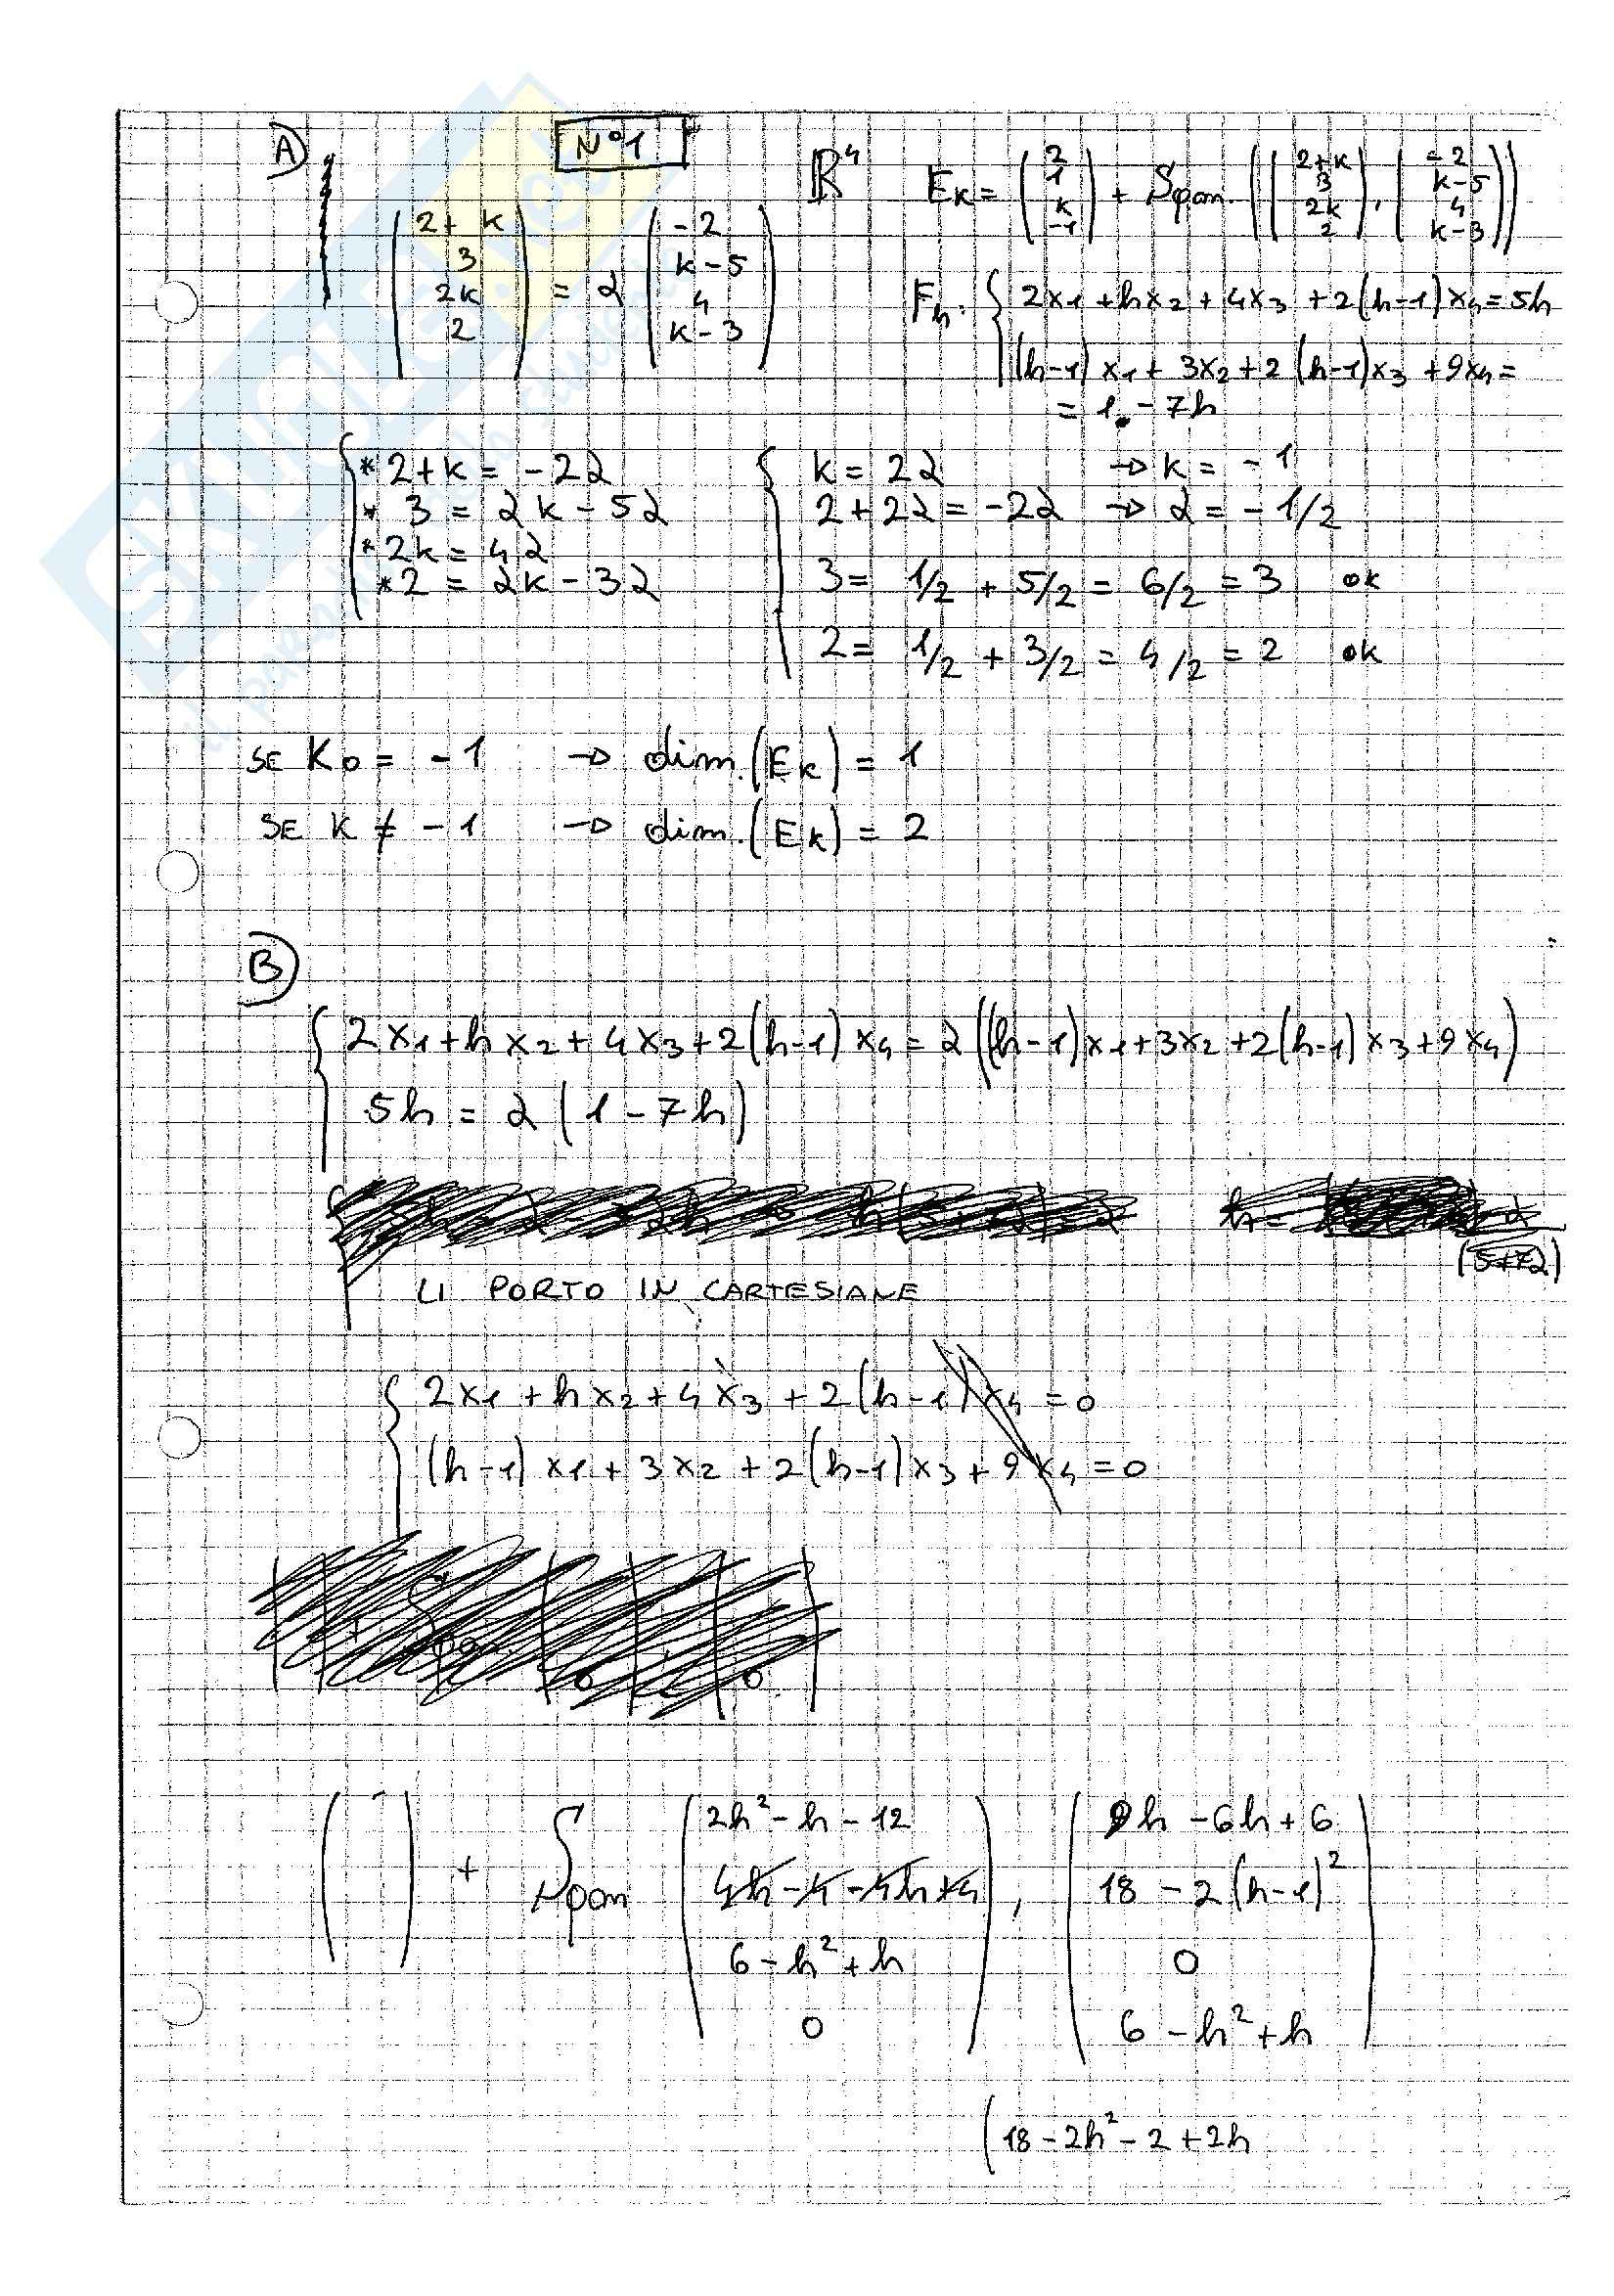 A) N°1 ℝ⁴ E_k = (2 1 k -1) + Span ((2+k 3 2k 2), (-2 k-5 4 k-3))
(2+k 3 2k 2) = α (-2 k-5 4 k-3)
F_h: { 2x₁ + hx₂ + 4x₃ + 2(h-1)x₄ = 5h
(h-1)x₁ + 3x₂ + 2(h-1)x₃ + 9x₄ =
= 1 - 7h
* 2+k = -2α
* 3 = αk - 5α
* 2k = 4α
* 2 = αk - 3α
k = 2α → k = -1
2+2α = -2α → α = -1/2
3 = 1/2 + 5/2 = 6/2 = 3 ok
2 = 1/2 + 3/2 = 4/2 = 2 ok
SE K₀ = -1 → dim.(E_k) = 1
SE K ≠ -1 → dim.(E_k) = 2
B)
2x₁ + hx₂ + 4x₃ + 2(h-1)x₄ = α((h-1)x₁ + 3x₂ + 2(h-1)x₃ + 9x₄)
5h = α(1-7h)
LI PORTO IN CARTESIANE
2x₁ + hx₂ + 4x₃ + 2(h-1)x₄ = 0
(h-1)x₁ + 3x₂ + 2(h-1)x₃ + 9x₄ = 0
( ) + Span (2h²-h-12 4h-4-4h+4 6-h²+h 0), (9h-6h+6 18-2(h-1)² 0 6-h²+h)
(18-2h²-2+2h